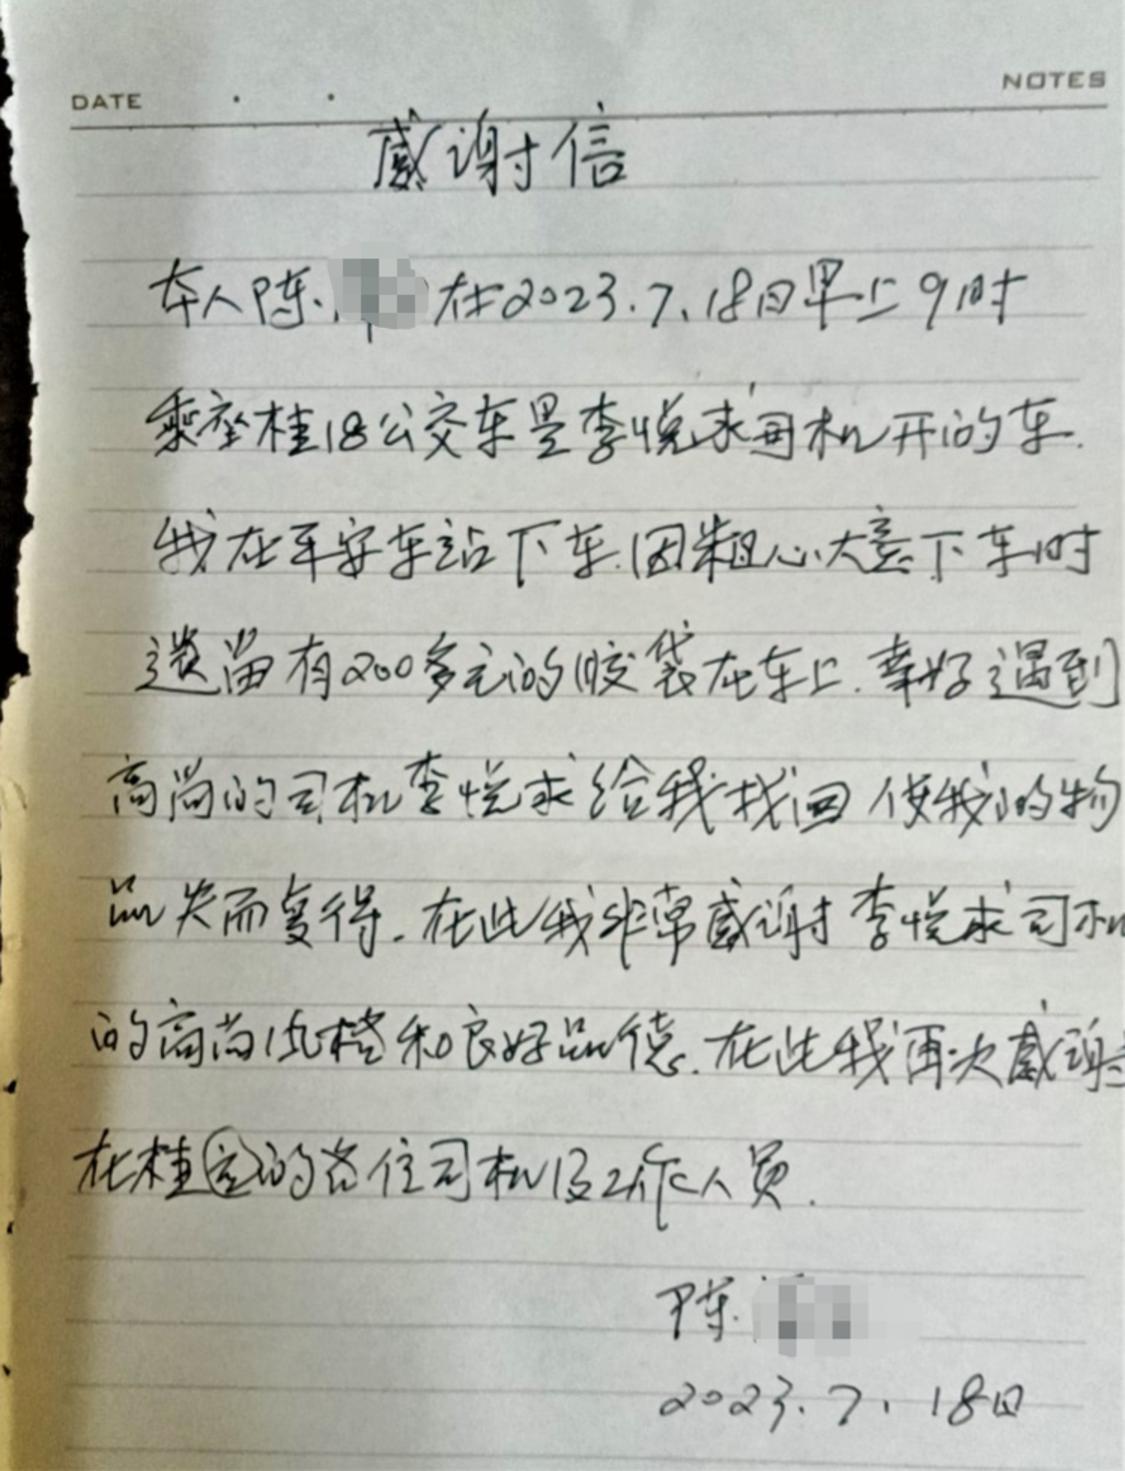 DATE
NOTES
感谢信
本人陈 在2023.7.18日早上9时
乘坐桂18公交车是李悦求司机开的车.
我在平安车站下车.因粗心大意下车时
遗留有200多元的胶袋在车上.幸好遇到
高尚的司机李悦求给我找回 使我的物
品失而复得.在此我非常感谢李悦求司机
的高尚风格和良好品德.在此我再次感谢
在桂的各位司机及工作人员.
陈
2023.7.18日